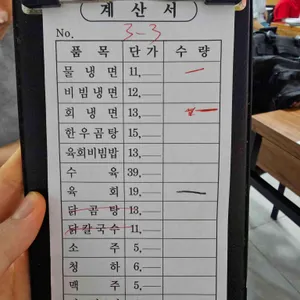 계 산 서
No. 3-3
품 목 단 가 수 량
물 냉 면 11,—
비 빔 냉 면 12,—
회 냉 면 13,—
한 우 곰 탕 15,—
육회비빔밥 13,—
수 육 39,—
육 회 19,—
닭 곰 탕 13,—
닭 칼 국 수 11,—
소 주 5,—
청 하 6,—
맥 주 5,—